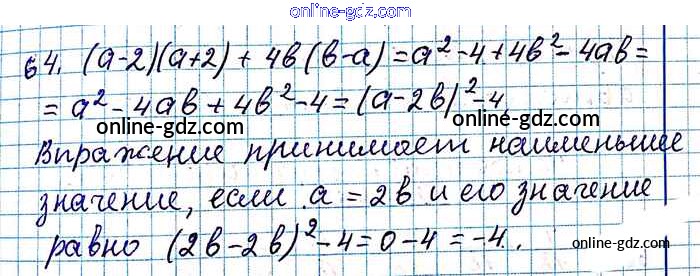 online-gdz.com
64. (a-2)(a+2) + 4b(b-a) = a² - 4 + 4b² - 4ab =
= a² - 4ab + 4b² - 4 = (a-2b)² - 4.
online-gdz.com online-gdz.com
Выражение принимает наименьшее
значение, если a = 2b и его значение
online-gdz.com online-gdz.com
равно (2b-2b)² - 4 = 0 - 4 = -4.
online-gdz.com